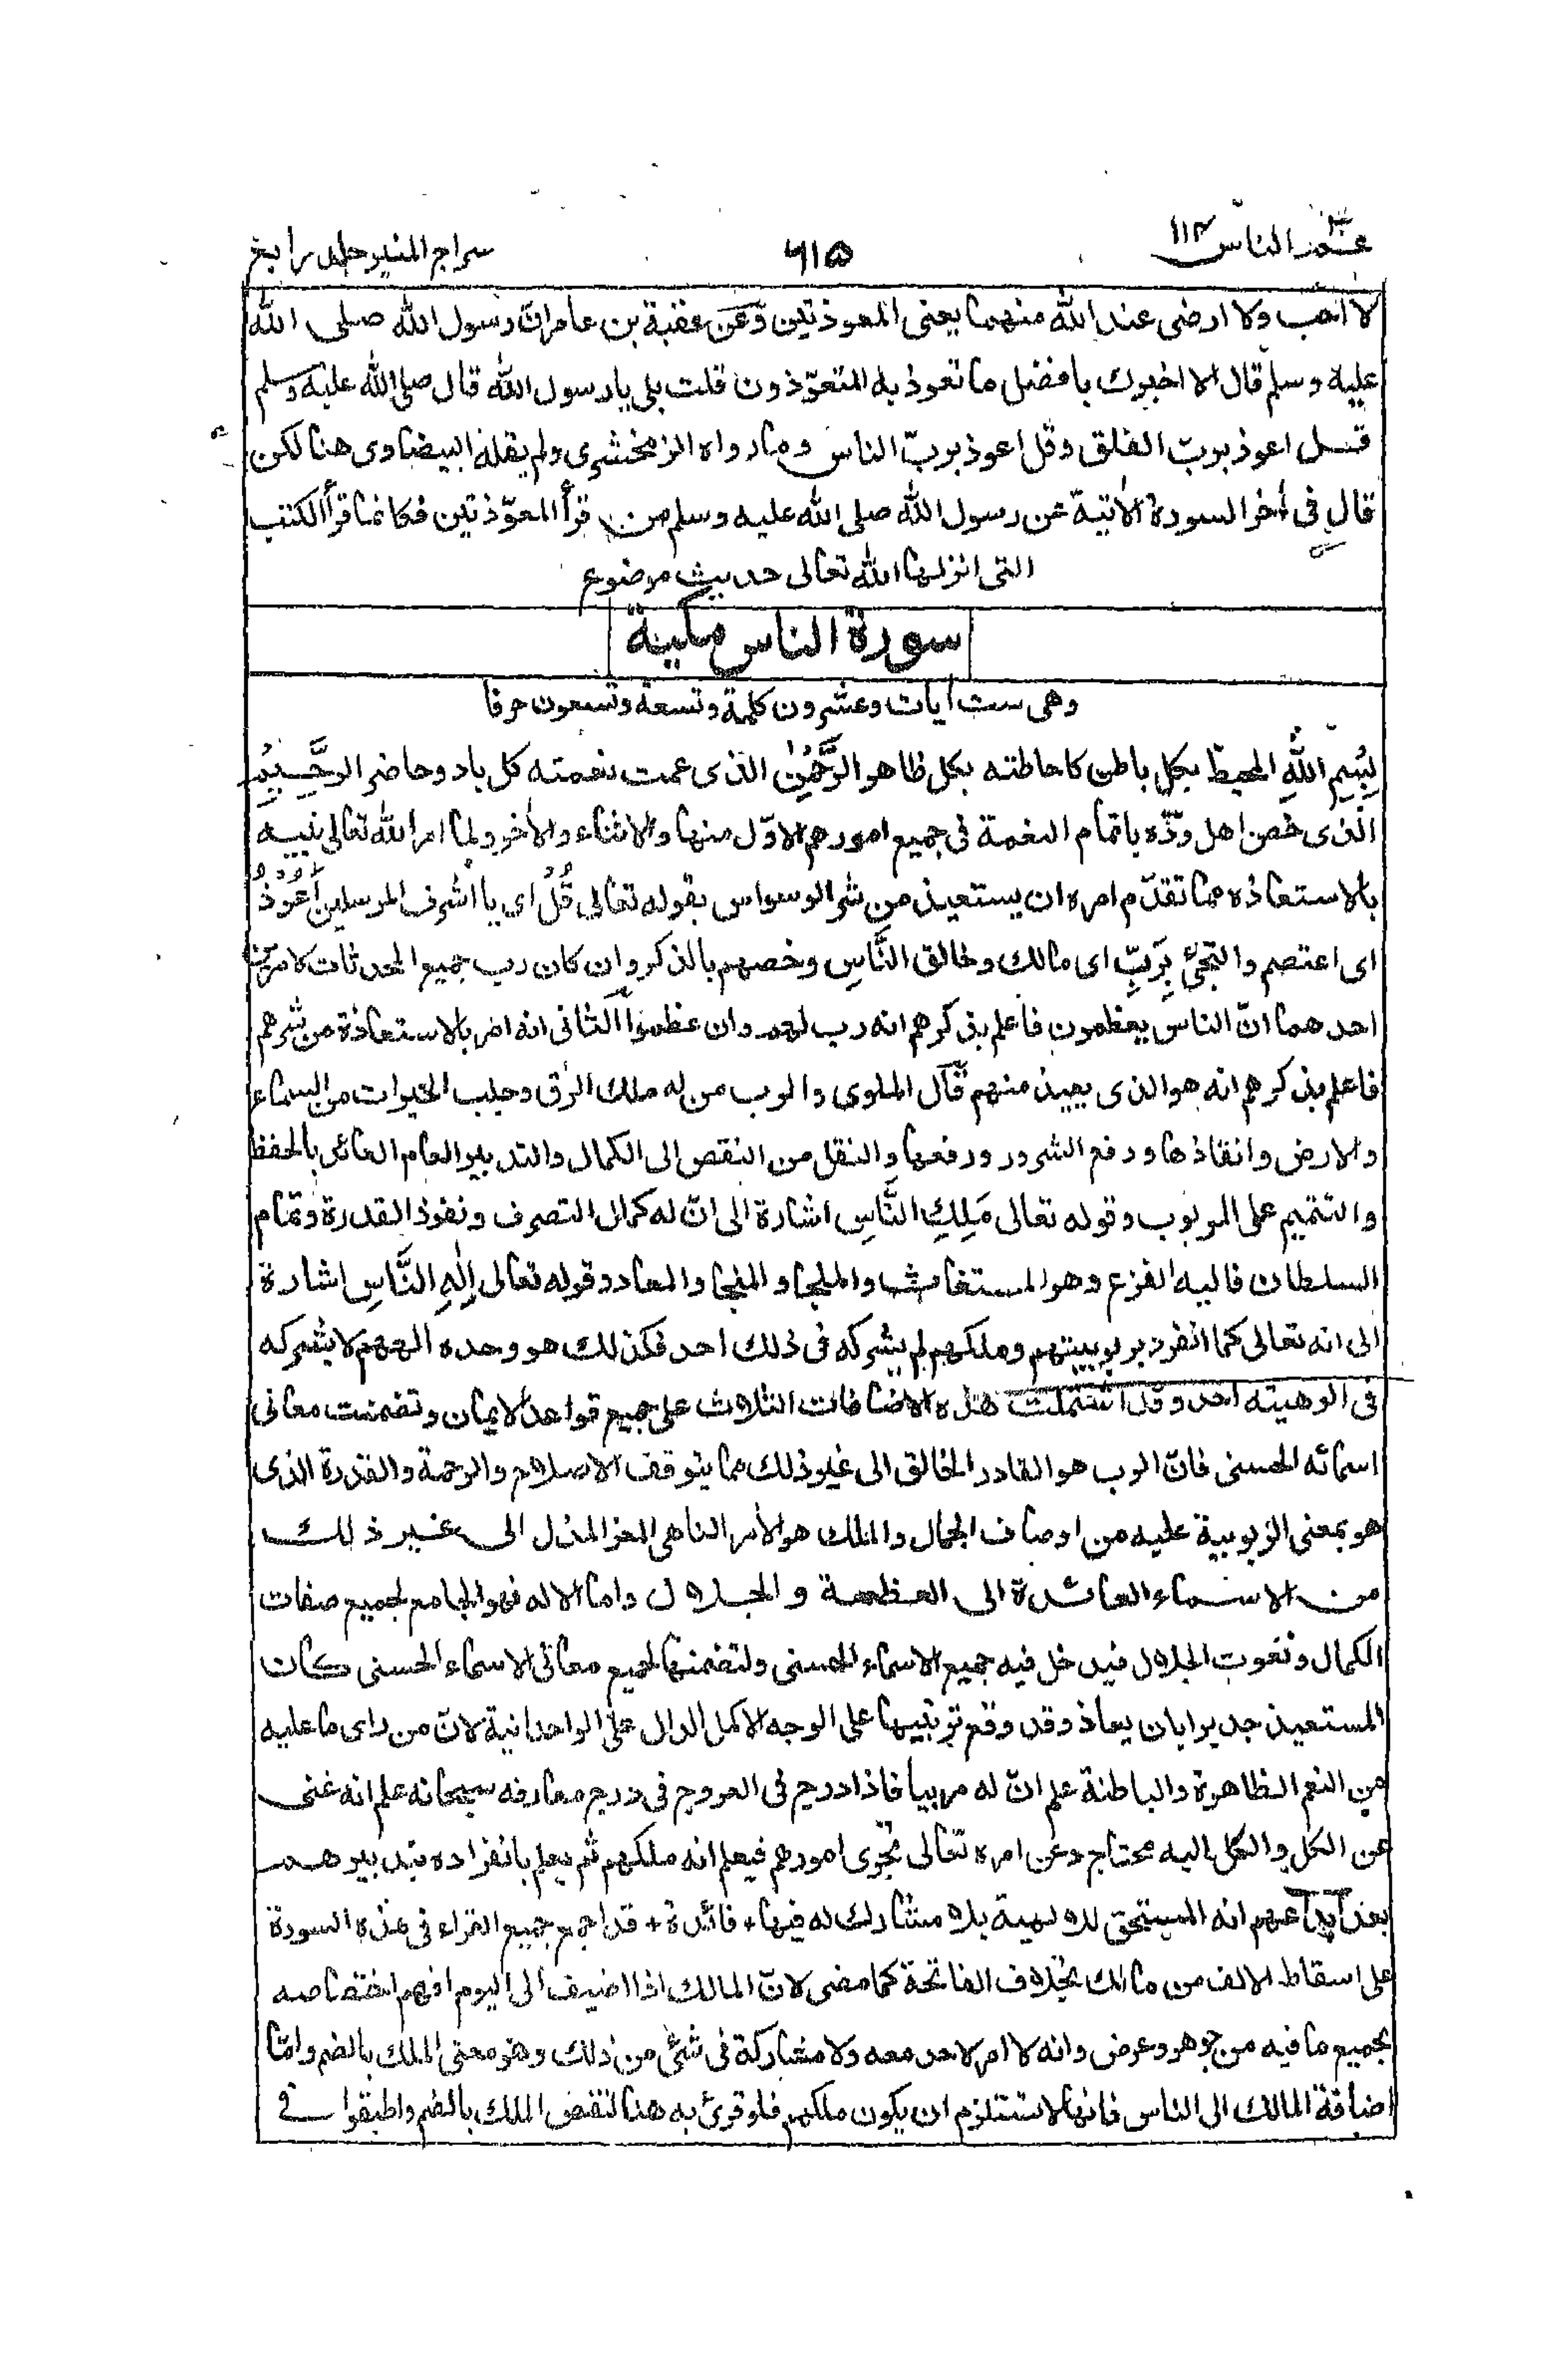 عـم الناس ۱۱۴
۶۱۵
سراج المنير جلد رابع
لا احب ولا ارضى عند الله منهما يعنى المعوذتين وعن عقبة بن عامر انّ رسول الله صلى الله
عليه وسلم قال الا اخبرك بافضل ما تعوذ به المتعوّذون قلت بلى يا رسول الله قال صلى الله عليه وسلم
قـل اعوذ بربّ الفلق وقل اعوذ بربّ الناس وما رواه الزمخشرى ولم يقله البيضاوى هنا لكن
قال فى اٰخر السورة الاٰتية عن رسول الله صلى الله عليه وسلم من قرأ المعوّذتين فكانما قرأ الكتب
التى انزلها الله تعالى حديث موضوع
سورة الناس مكية
وهى ست اٰيات وعشرون كلمة وتسعة وتسعون حرفا
بِسْمِ اللهِ المحيط بكل باطن كاحاطته بكل ظاهر الرَّحْمٰنِ الذى عمت نعمته كل باد وحاضر الرَّحِيْمِ
الذى خص اهل ودّه باتمام النعمة فى جميع امورهم الاوّل منها والاثناء والاٰخر ولما امر الله تعالى نبيه
بالاستعاذه مما تقدّم امره ان يستعيذ من شر الوسواس بقوله تعالى قُلْ اى يا اشرف المرسلين أَعُوْذُ
اى اعتصم والتجئ بِرَبِّ اى مالك وخالق النَّاسِ وخصهم بالذكر وان كان رب جميع المحدثات لامرين
احدهما انّ الناس يعظمون فاعلم بذكرهم انه رب لهم وان عظموا الثانى انه امر بالاستعاذة من شرهم
فاعلم بذكرهم انه هو الذى يعيذ منهم قال الملوى والرب من له ملك الرق وجلب الخيرات من السماء
والارض وانقاذها ودفع الشرور ورفعها والنقل من النقص الى الكمال والتدبير العام العائد بالحفظ
والتتميم على المربوب وقوله تعالى مَلِكِ النَّاسِ اشارة الى انّ له كمال التصرف ونفوذ القدرة وتمام
السلطان فاليه الفزع وهو المستغاث والملجا والمنجا والمعاد وقوله تعالى اِلٰهِ النَّاسِ اشارة
الى انه تعالى كما انفرد بربوبيتهم وملكهم لم يشركه فى ذلك احد فكذلك هو وحده الٰههم لا يشركه
فى الوهيته احد وقد اشتملت هذه الاضافات الثلاث على جميع قواعد الايمان وتضمنت معانى
اسمائه الحسنى فانّ الرب هو القادر الخالق الى غير ذلك مما يتوقف الاصلاح والرحمة والقدرة الذى
هو بمعنى الربوبية عليه من اوصاف الجمال والملك هو الاٰمر الناهى المعز المذل الى غير ذلك
من الاسماء العائدة الى العظمة والجلال واما الاله فهو الجامع لجميع صفات
الكمال ونعوت الجلال فيدخل فيه جميع الاسماء الحسنى ولتضمنها لجميع معانى الاسماء الحسنى كان
المستعيذ جديرا بان يعاذ وقد وقع ترتيبها على الوجه الاكمل الدال على الواحدانية لانّ من راى ما عليه
من النعم الظاهرة والباطنة علم انّ له مربيا فاذا درج فى العروج فى درج معارفه سبحانه علم انه غنى
عن الكل والكل اليه محتاج وعن امره تعالى تجرى امورهم فيعلم انه ملكهم ثم يعلم بانفراده بتدبيرهم
بعد ابداعهم انه المستحق للالٰهية بلا مشارك له فيها + فائدة + قد اجمع جميع القراء فى هذه السورة
على اسقاط الالف من مالك بخلاف الفاتحة كما مضى لانّ المالك اذا اضيف الى اليوم افهم اختصاصه
بجميع ما فيه من جوهر وعرض وانه لا امر لاحد معه ولا مشاركة فى شئ من ذلك وهو معنى الملك بالضم وامّا
اضافة المالك الى الناس فانها لا تستلزم ان يكون ملكهم فلو قرئ به هنا لنقص الملك بالضم واطبقوا فى